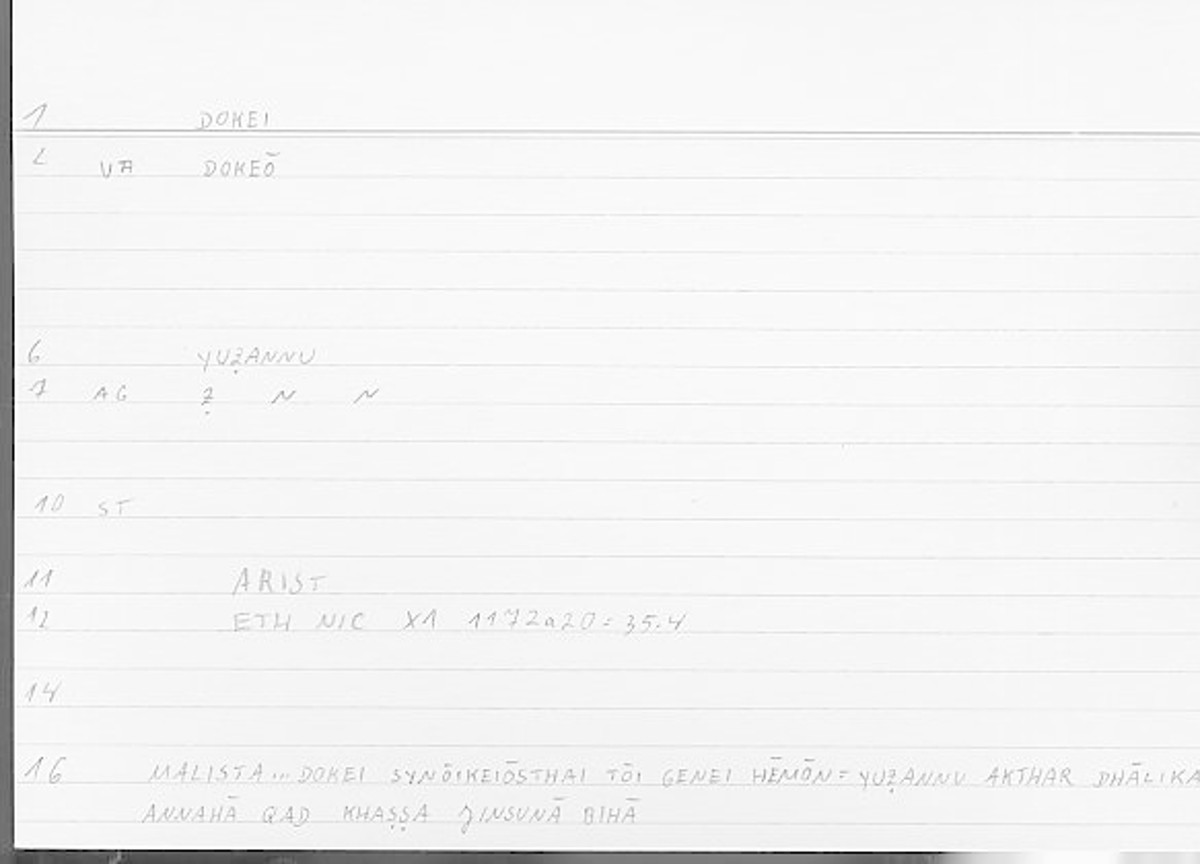 1 DOKEI
2 VA DOKEŌ
6 YUẒANNU
7 AG Ẓ N N
10 ST
11 ARIST
12 ETH NIC X1 1172a20 = 35.4
14
16 MALISTA... DOKEI SYNŌIKEIŌSTHAI TŌI GENEI HĒMŌN = YUẒANNU AKTHAR DHĀLIKA
ANNAHĀ QAD KHAṢṢA JINSUNĀ BIHĀ